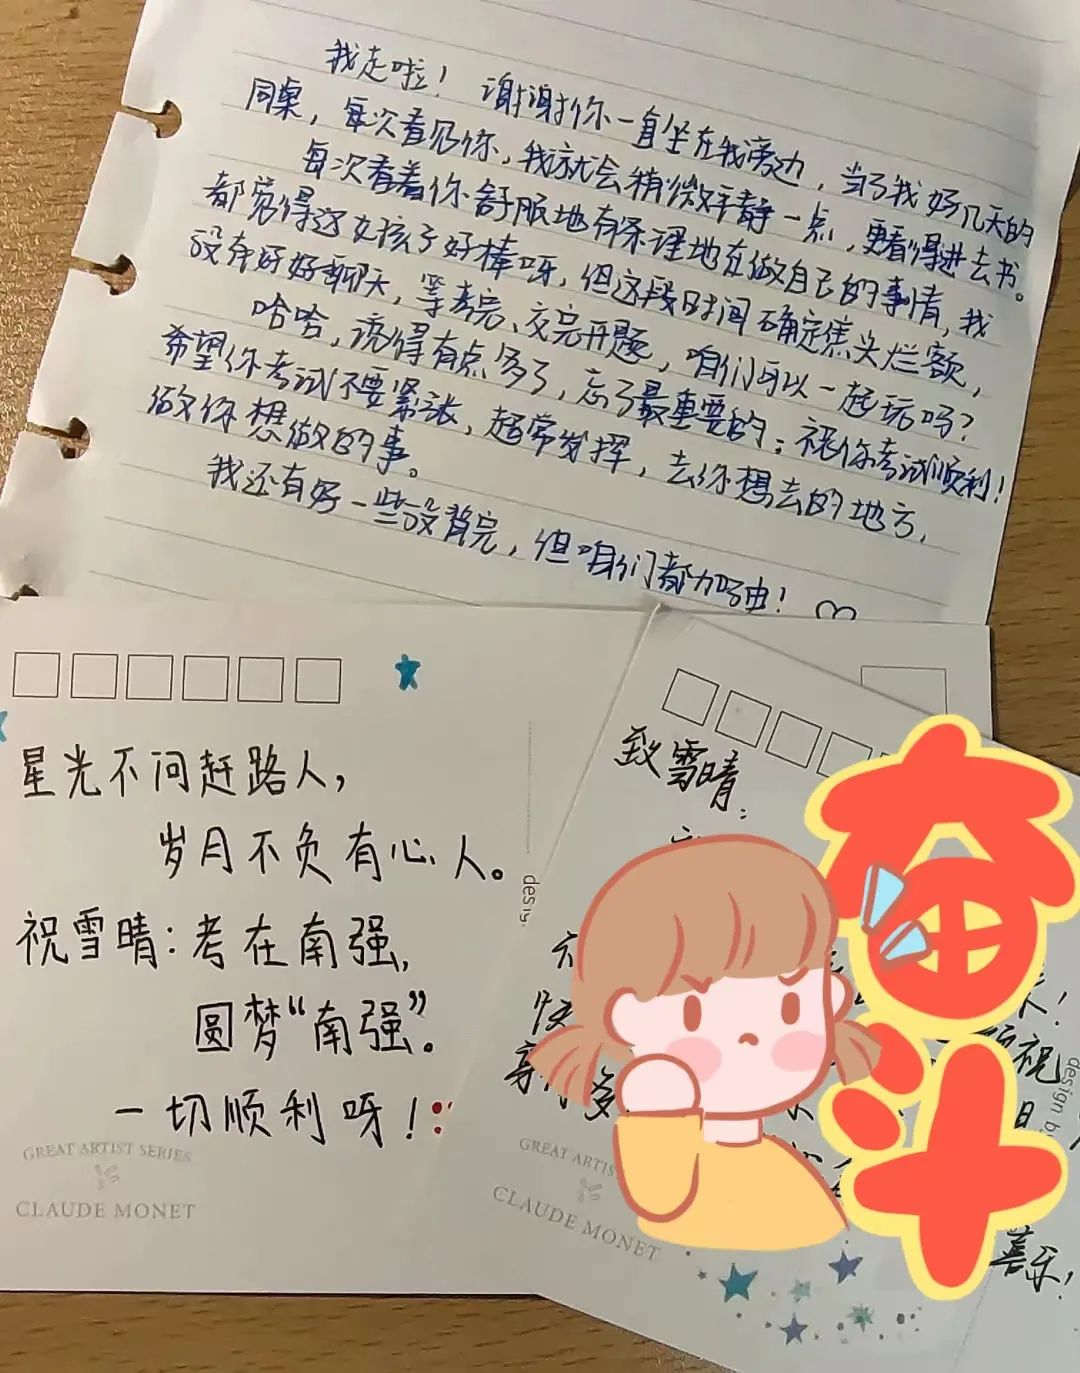 我走啦！谢谢你一直坐在我旁边，当了我好几天的
同桌，每次看见你，我就会稍微平静一点，更看得进去书。
每次看着你舒服地有条理地在做自己的事情，我
都觉得这女孩子好棒呀，但这段时间确定焦头烂额，
没有好好聊天，等考完、交完开题，咱们可以一起玩吗？
哈哈，说得有点多了，忘了最重要的：祝你考试顺利！
希望你考试不要紧张，超常发挥，去你想去的地方，
做你想做的事。
我还有好一些没背完，但咱们都加油！
星光不问赶路人，
岁月不负有心人。
祝雪晴：考在南强，
圆梦“南强”。
一切顺利呀！
GREAT ARTIST SERIES
CLAUDE MONET
desig
致雪晴：
祝
design b
喜乐！
GREAT ARTIS
CLAUDE MONET
奋斗